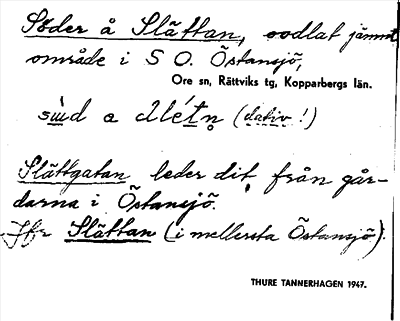 Söder å Slättan, oodlat jämnt
område i S O. Östansjö,
Ore sn, Rättviks tg, Kopparbergs län.
sùd a slétn (dativ!)
Slättgatan leder dit, från går-
darna i Östansjö.
Jfr Slättan (i mellersta Östansjö).
THURE TANNERHAGEN 1947.